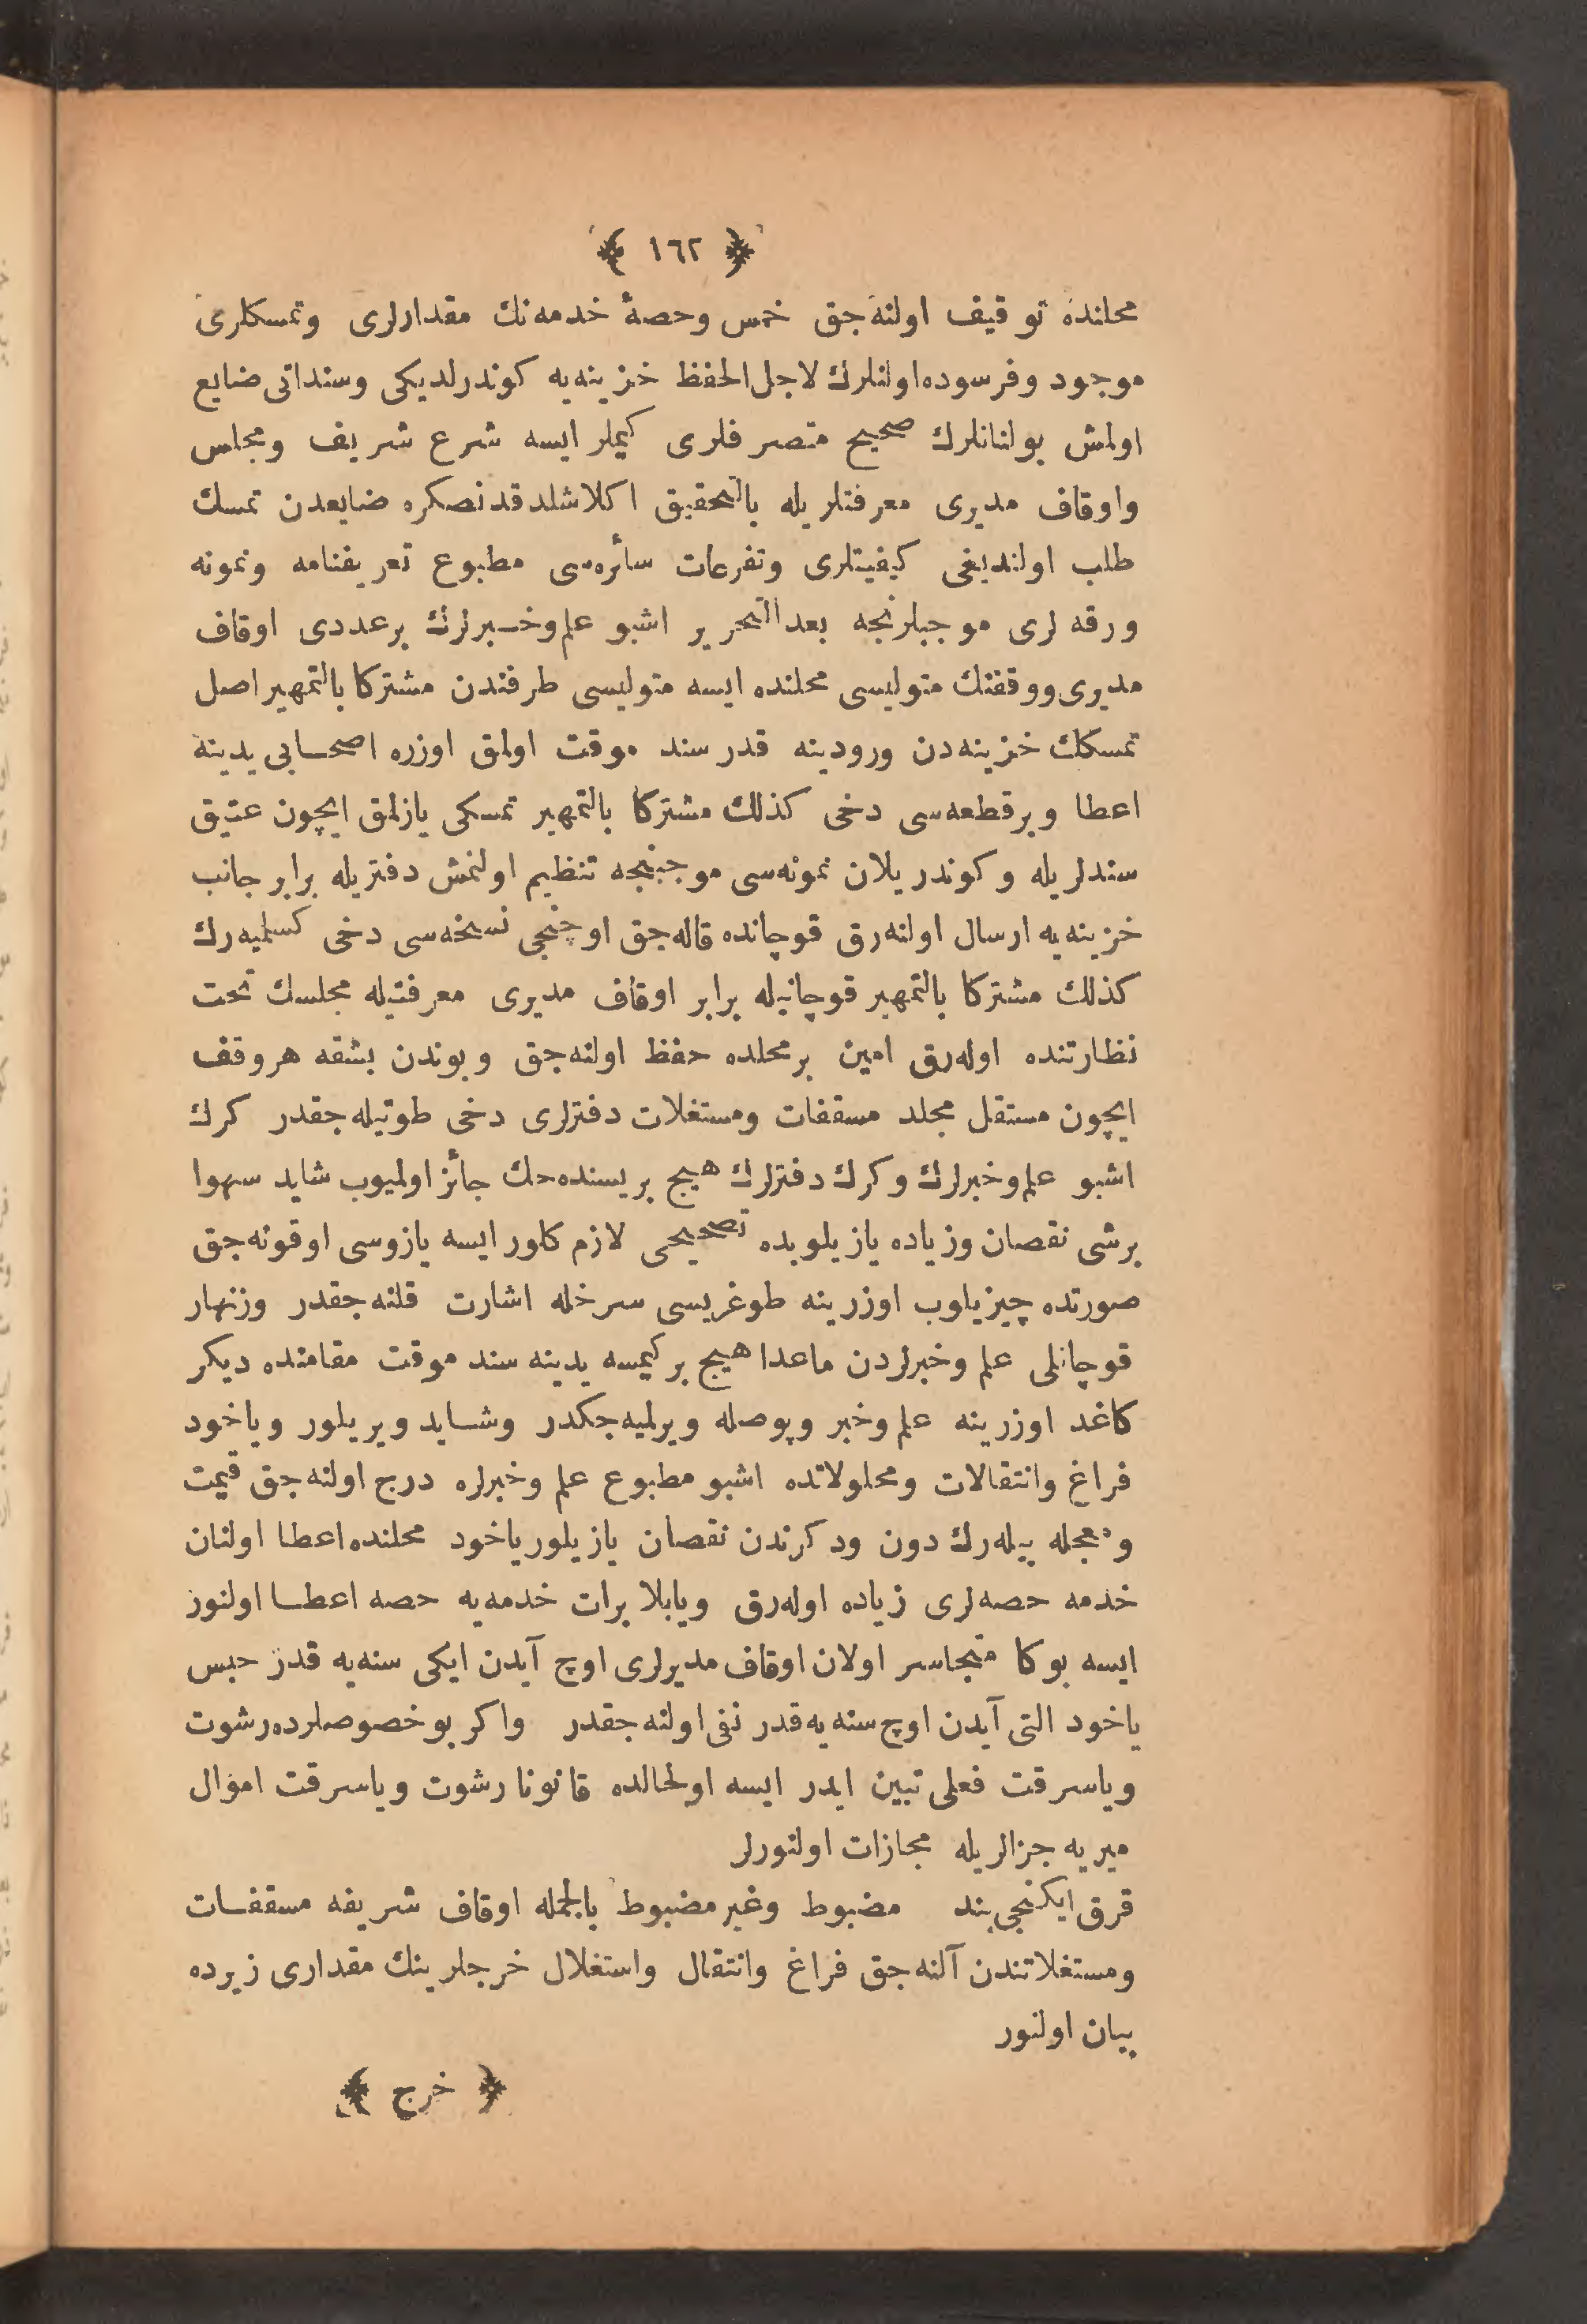 ﴿ ١٦٢ ﴾
محلنده توقیف اولنه‌جق خمس وحصهٔ خدمه‌نك مقدارلری وتمسكلری
موجود وفرسوده‌اولنلرك لاجل‌الحفظ خزینه‌یه كوندرلدیكی وسنداتی ضایع
اولمش بولنانلرك صحیح متصرفلری كیملر ایسه شرع شریف ومجلس
واوقاف مدیری معرفتلریله بالتحقیق اكلاشلدقدنصكره ضایعدن تمسك
طلب اولندیغی كیفیتلری وتفرعات سائره‌سی مطبوع تعریفنامه ونمونه
ورقه‌لری موجبلرنجه بعدالتحریر اشبو علم‌وخـبرلرك برعددی اوقاف
مدیری‌ووقفنك متولیسی محلنده ایسه متولیسی طرفندن مشتركا بالتمهیر اصل
تمسكك خزینه‌دن ورودینه قدر سند موقت اولمق اوزره اصحـابی یدینه
اعطا وبرقطعه‌سی دخی كذلك مشتركا بالتمهیر تمسكی یازلمق ایچون عتیق
سندلریله وكوندریلان نمونه‌سی موجبنجه تنظیم اولنمش دفتریله برابر جانب
خزینه‌یه ارسال اولنه‌رق قوچانده قاله‌جق اوچنجی نسخه‌سی دخی كسلمیه‌رك
كذلك مشتركا بالتمهیر قوچانیله برابر اوقاف مدیری معرفتیله مجلسك تحت
نظارتنده اوله‌رق امین برمحلده حفظ اولنه‌جق وبوندن بشقه هروقف
ایچون مستقل مجلد مسقفات ومستغلات دفترلری دخی طوتیله‌جقدر كرك
اشبو علم‌وخبرلرك وكرك دفترلرك هیچ بریسنده‌حك جائز اولمیوب شاید سهوا
برشی نقصان وزیاده یازیلوبده تصحیحی لازم كلور ایسه یازوسی اوقونه‌جق
صورتده چیزیلوب اوزرینه طوغریسی سرخله اشارت قلنه‌جقدر وزنهار
قوچانلی علم وخبرلردن ماعدا هیچ بركیمسه یدینه سند موقت مقامنده دیكر
كاغد اوزرینه علم وخبر وپوصله ویرلمیه‌جكدر وشـاید ویریلور ویاخود
فراغ وانتقالات ومحلولاتده اشبو مطبوع علم وخبرلره درج اولنه‌جق قیمت
ومعجله بیله‌رك دون ودكرندن نقصان یازیلورياخود محلنده‌اعطا اولنان
خدمه حصه‌لری زیاده اوله‌رق ویابلا برات خدمه‌یه حصه اعطـا اولنور
ایسه بوكا متجاسر اولان اوقاف مدیرلری اوچ آیدن ایكی سنه‌یه قدر حبس
یاخود التی آیدن اوچ سنه‌یه‌قدر نفی اولنه‌جقدر واكر بوخصوصلرده‌رشوت
ویاسرقت فعلی تبین ایدر ایسه اولحالده قانونا رشوت ویاسرقت اموال
میریه جزالریله مجازات اولنورلر
قرق ایكنجی بند مضبوط وغیرمضبوط بالجمله اوقاف شریفه مسقفـات
ومستغلاتندن آلنه‌جق فراغ وانتقال واستغلال خرجلرینك مقداری زیرده
بیان اولنور
﴿ خرج ﴾